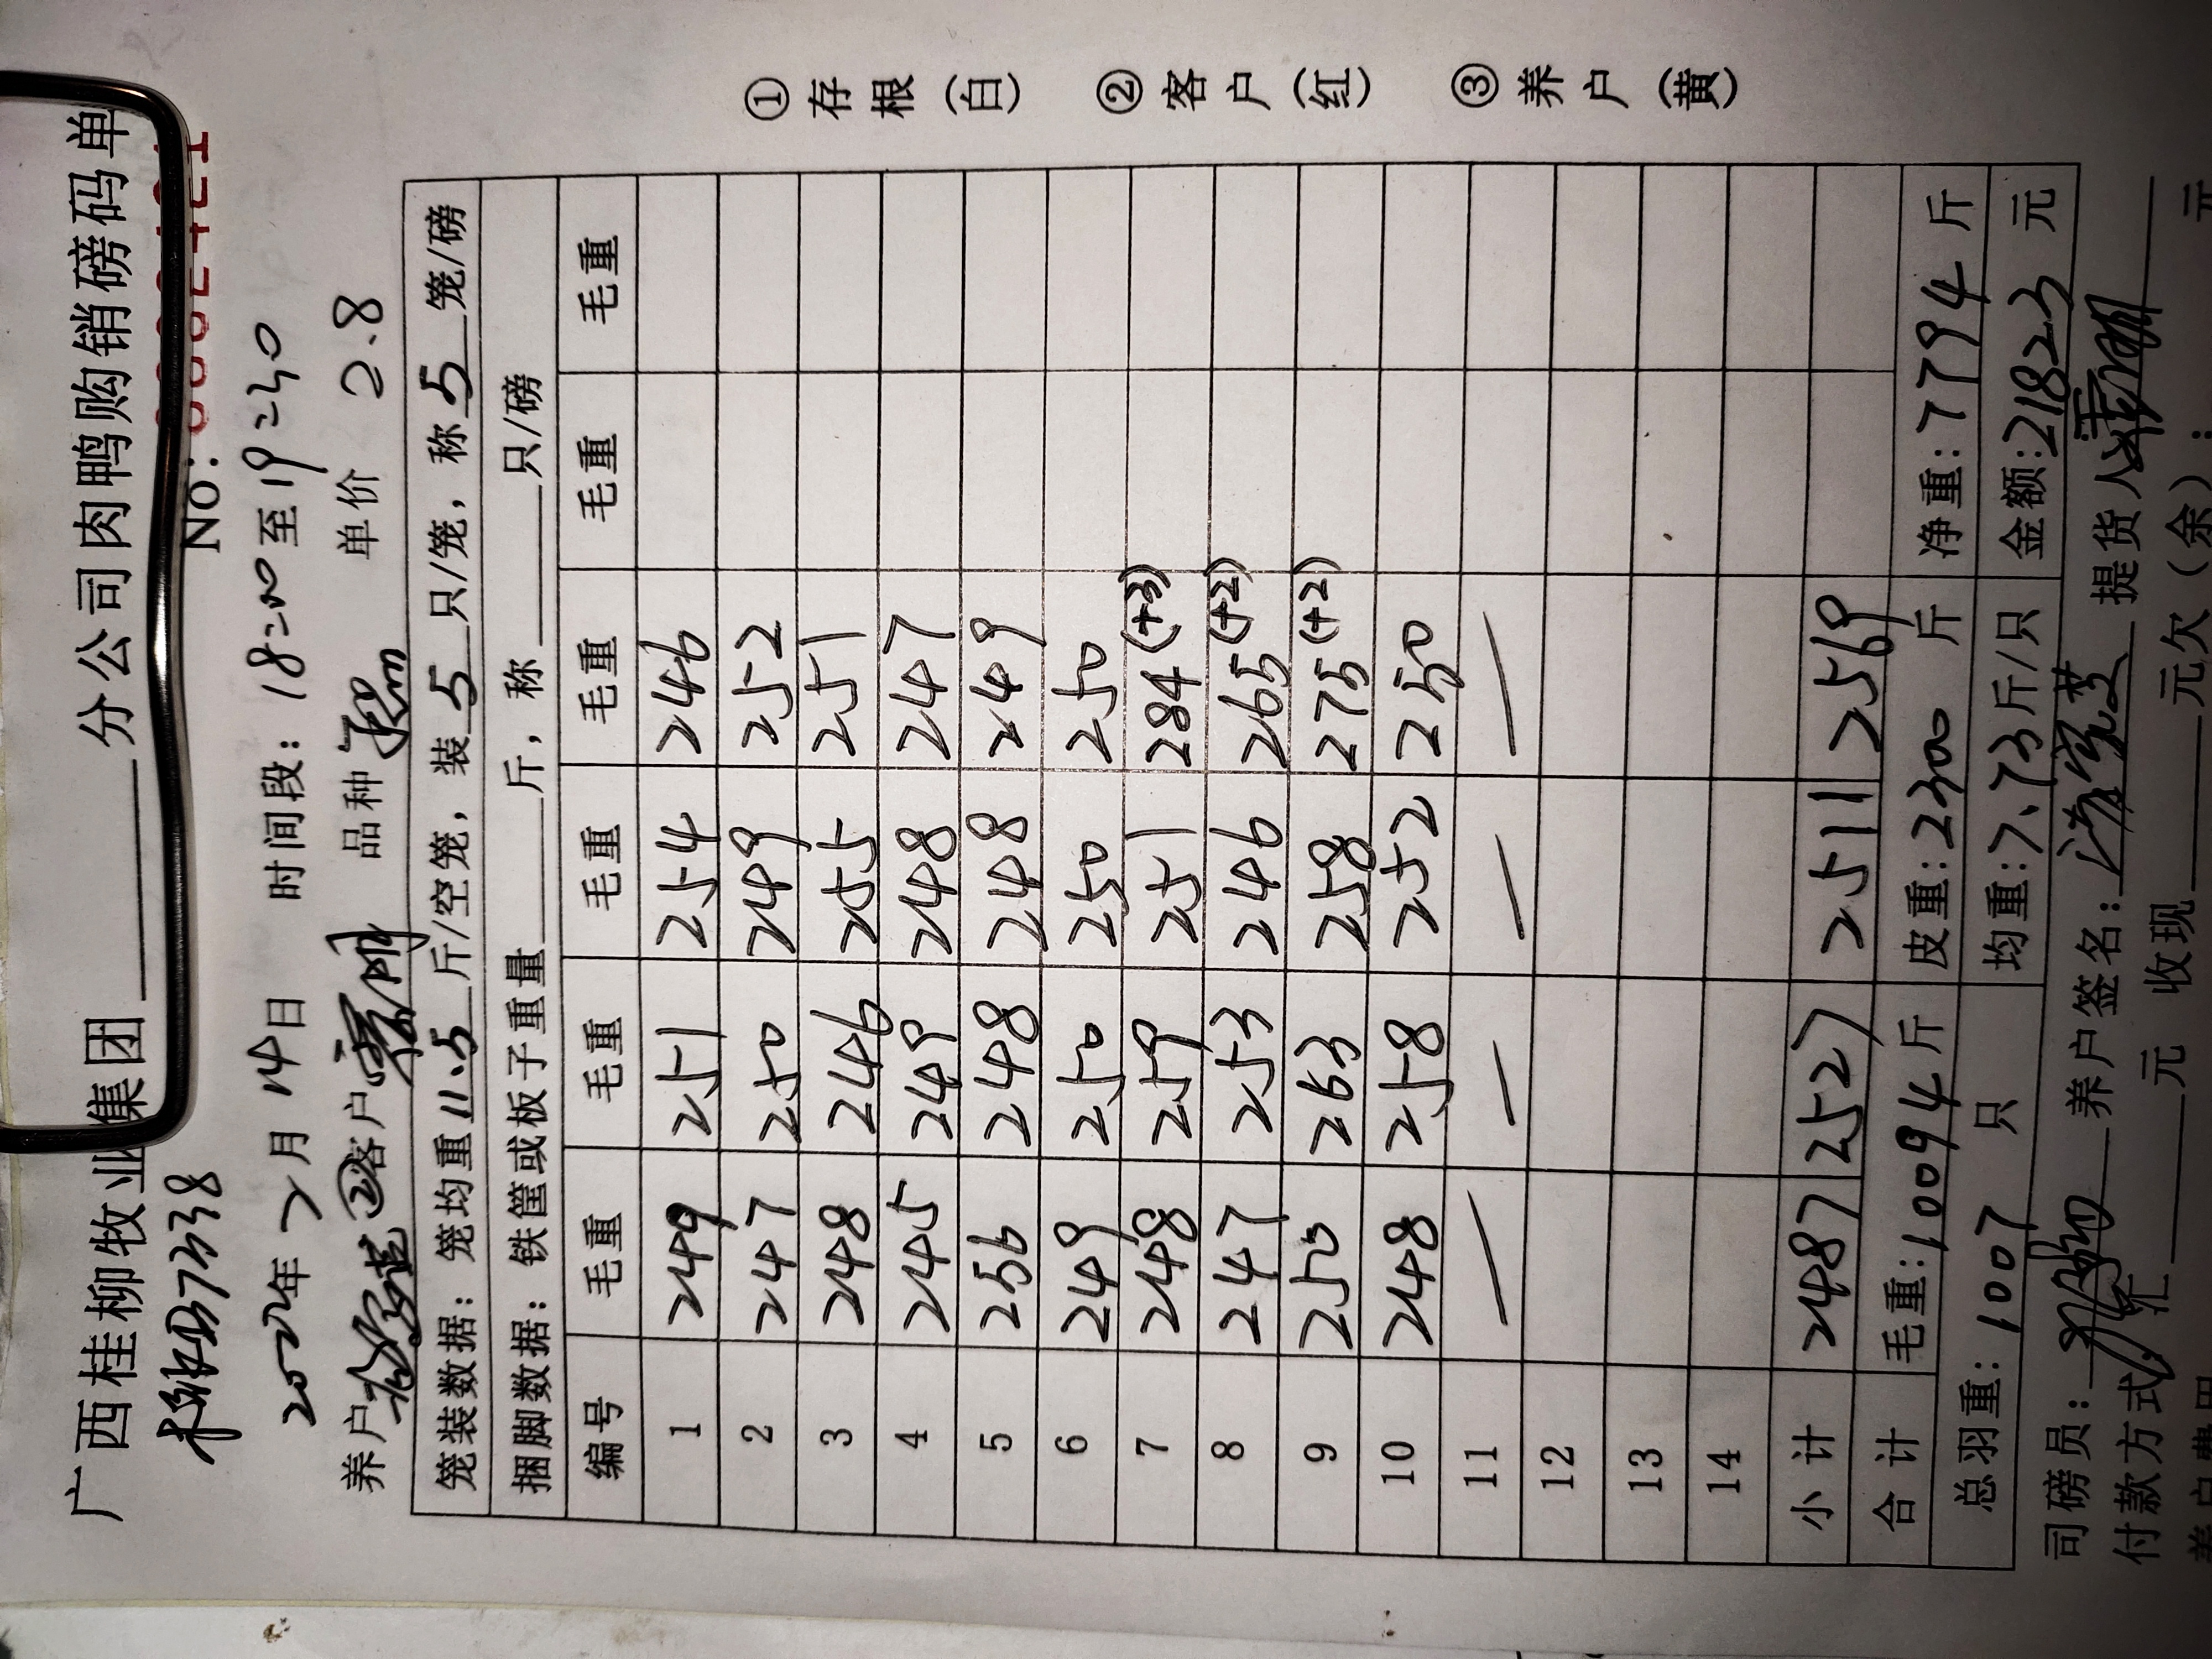 广西桂柳牧业集团 分公司肉鸭购销磅码单
桂BD7338 NO:
2022年7月14日 时间段：18:00至19:40
养户 ②客户 品种 单价 2.8
笼装数据：笼均重11.5斤/空笼，装5只/笼，称5笼/磅
捆脚数据：铁筐或板子重量 斤，称 只/磅
编号 毛重 毛重 毛重 毛重 毛重 毛重
1 249 251 254 246
2 247 250 249 252
3 248 246 255 251
4 245 249 248 247
5 256 248 248 249
6 249 250 250 250
7 248 259 251 284(+3)
8 247 253 246 265(+2)
9 250 263 258 275(+2)
10 248 258 252 250
11 — — — —
12
13
14
小计 2487 2527 2511 2569
合计 毛重：10094斤 皮重：2300斤 净重：7794斤
总羽重：1007只 均重：7.73斤/只 金额：21823元
司磅员： 养户签名： 提货人
付款方式 汇 元 收现 元欠（余）： 元
①存根（白） ②客户（红） ③养户（黄）